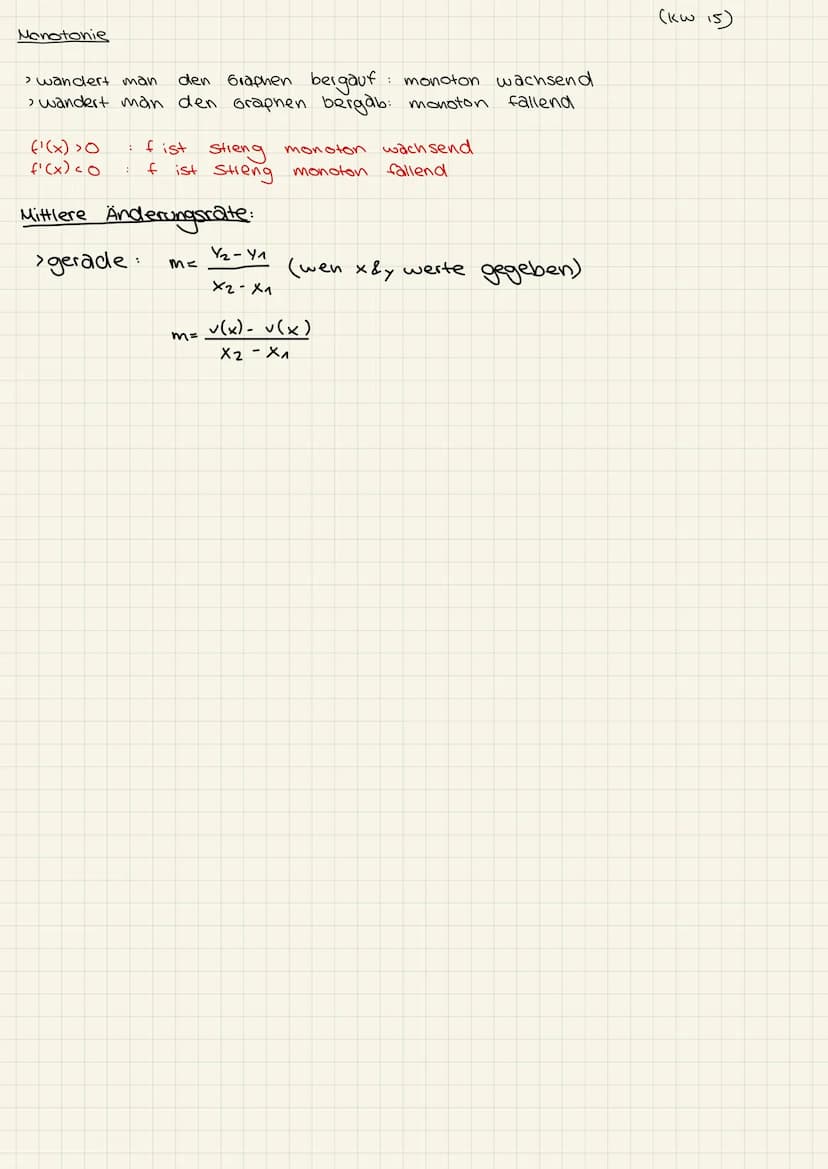 (KW 15)
Monotonie
> wandert man den Graphen bergauf : monoton wachsend
> wandert man den Graphen bergab: monoton fallend
f'(x) >0 : f ist streng monoton wachsend
f'(x) <0 : f ist streng monoton fallend
Mittlere Änderungsrate:
> gerade : m= y₂-y₁ / x₂-x₁ (wen x & y werte gegeben)
m= v(x)- v(x) / x₂-x₁